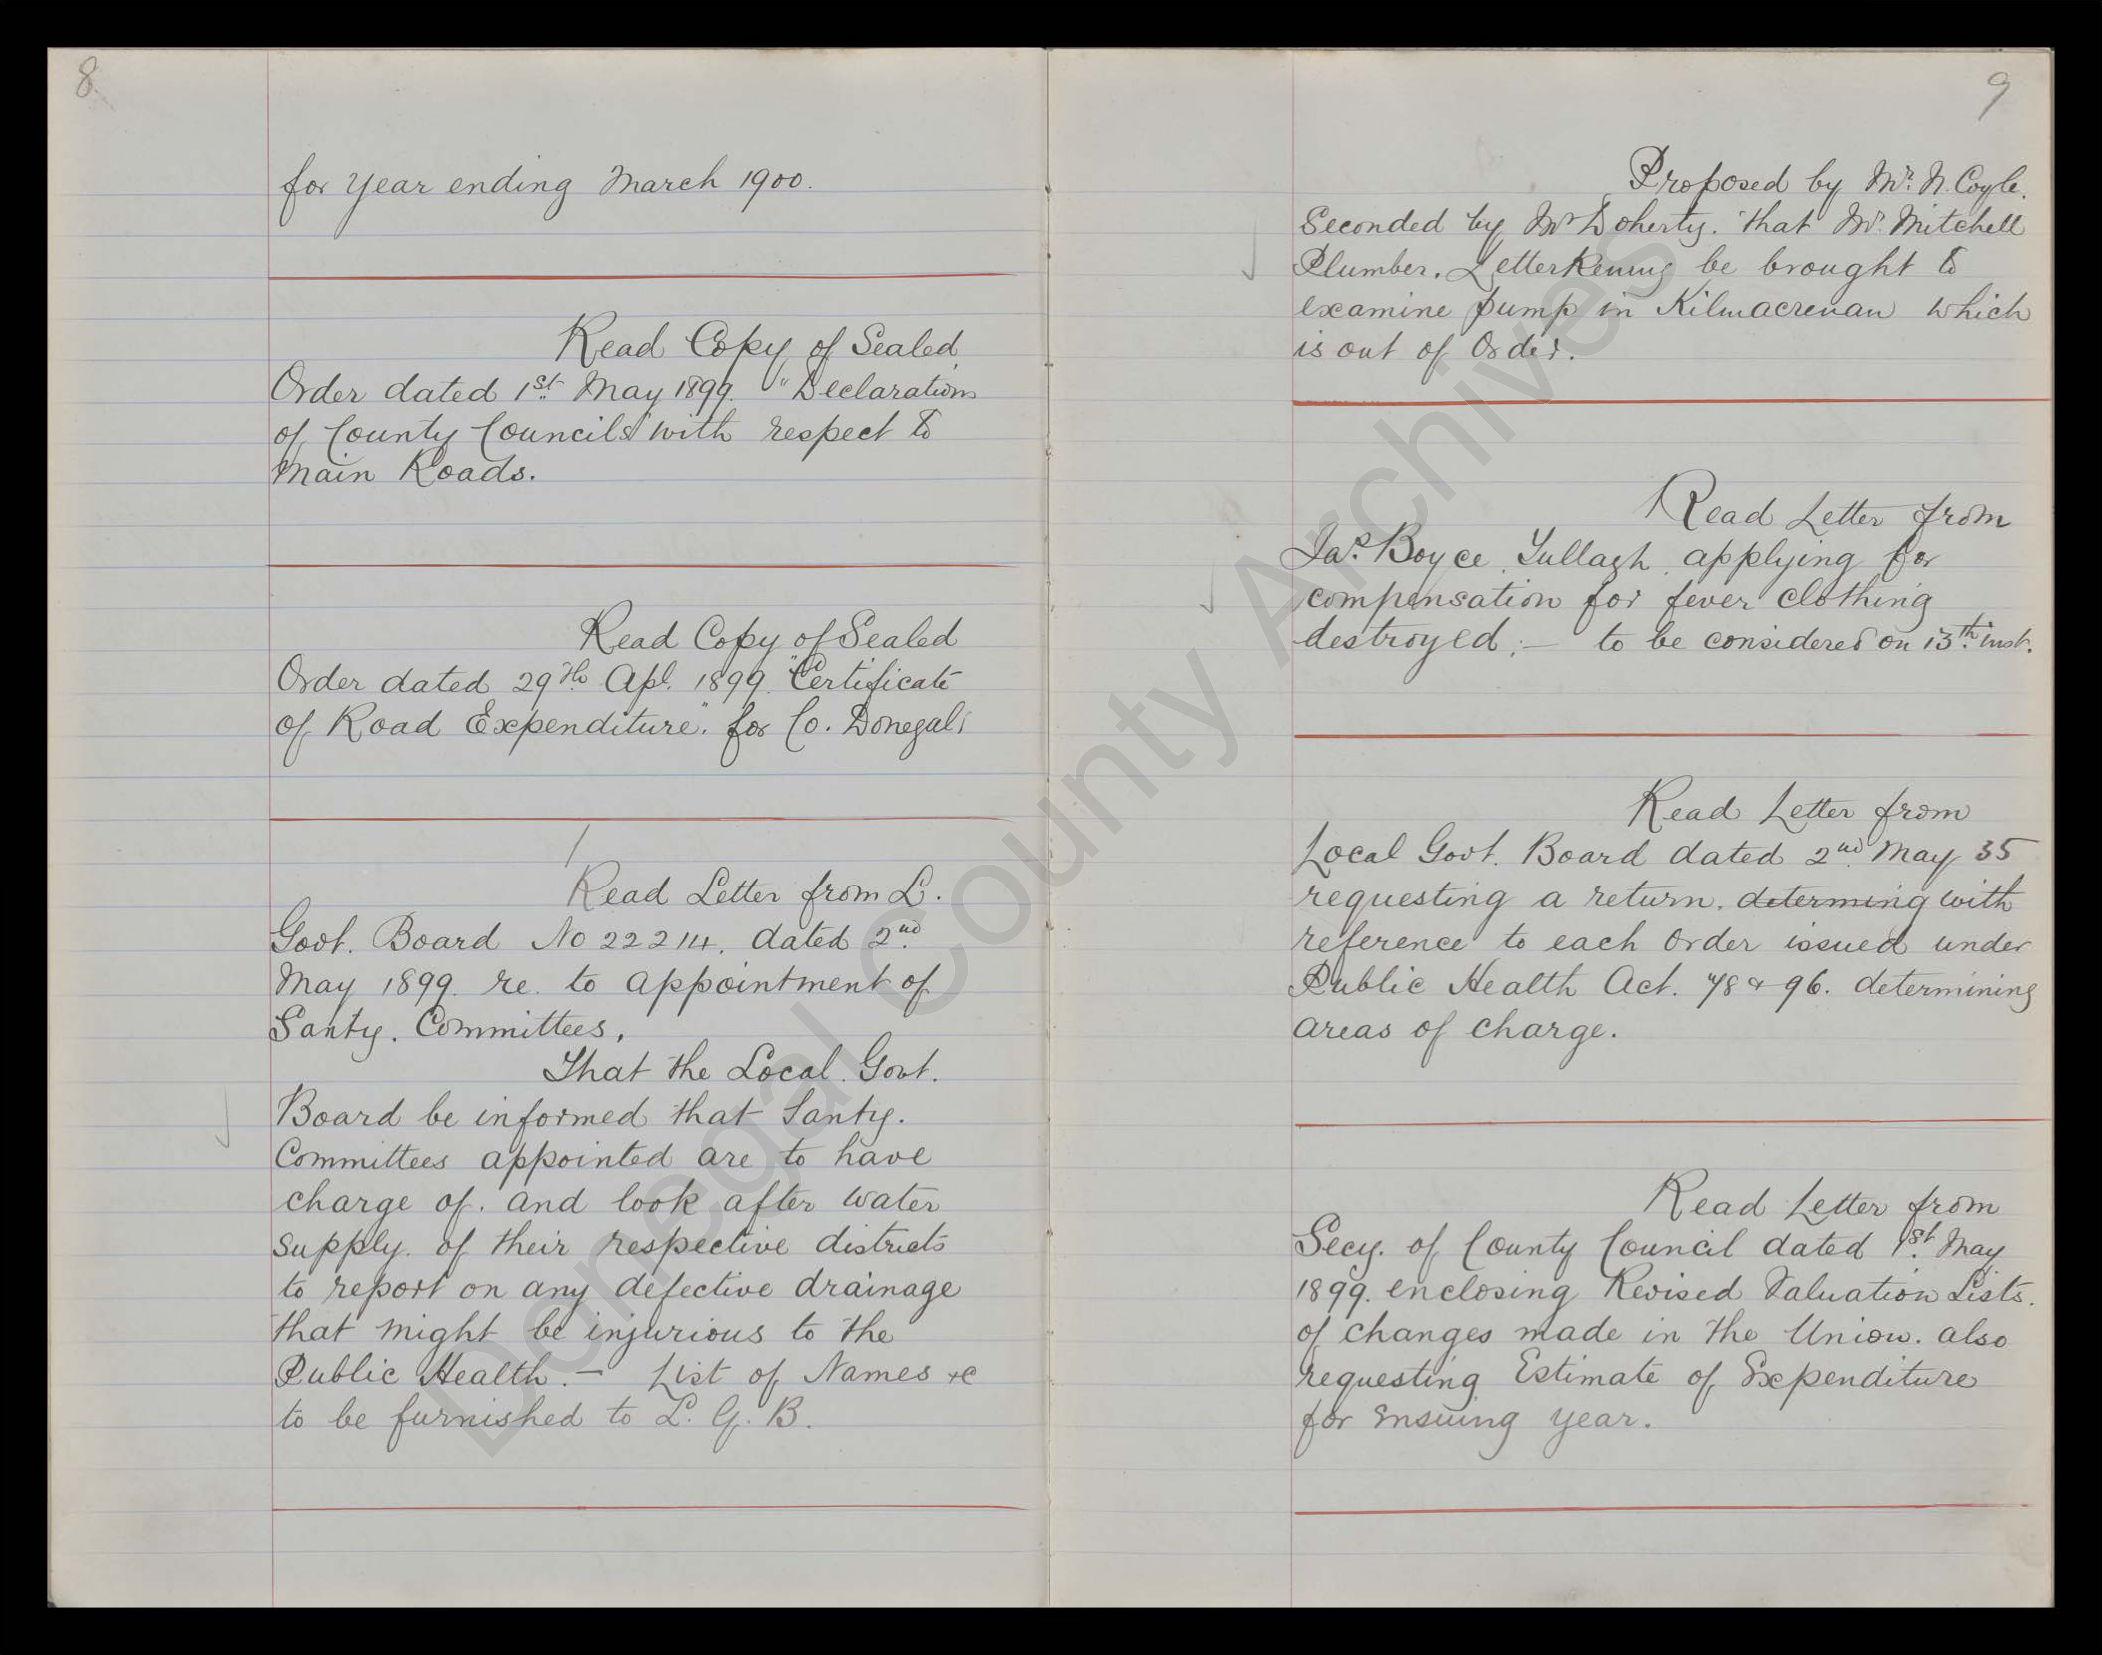 8
for year ending March 1900.
Read Copy of Sealed
Order dated 1st May 1899. "Declarations
of County Councils" with respect to
Main Roads.
Read Copy of Sealed
Order dated 29th Apl. 1899. "Certificate
of Road Expenditure". for Co. Donegal.
Read Letter from L.
Govt. Board No 22214. dated 2nd
May 1899. re. to appointment of
Santy. Committees.
That the Local Govt.
Board be informed that Santy.
Committees appointed are to have
charge of. and look after water
supply. of their respective districts
to report on any defective drainage
that might be injurious to the
Public Health. — List of Names &c
to be furnished to L. G. B.
9
Proposed by Mr. N. Coyle.
Seconded by Mr Doherty. that Mr. Mitchell
Plumber. Letterkenny be brought to
examine pump in Kilmacrenan which
is out of Order.
Read Letter from
Jas. Boyce. Tullagh. applying for
compensation for fever clothing
destroyed :— to be considered on 13th inst.
Read Letter from
Local Govt. Board dated 2nd May 35
requesting a return. determing with
reference to each Order issued under
Public Health Act. 78 & 96. determining
areas of charge.
Read Letter from
Secy. of County Council dated 1st May
1899. enclosing Revised Valuation Lists.
of changes made in the Union. also
requesting Estimate of Expenditure
for ensuing year.
Donegal County Archives